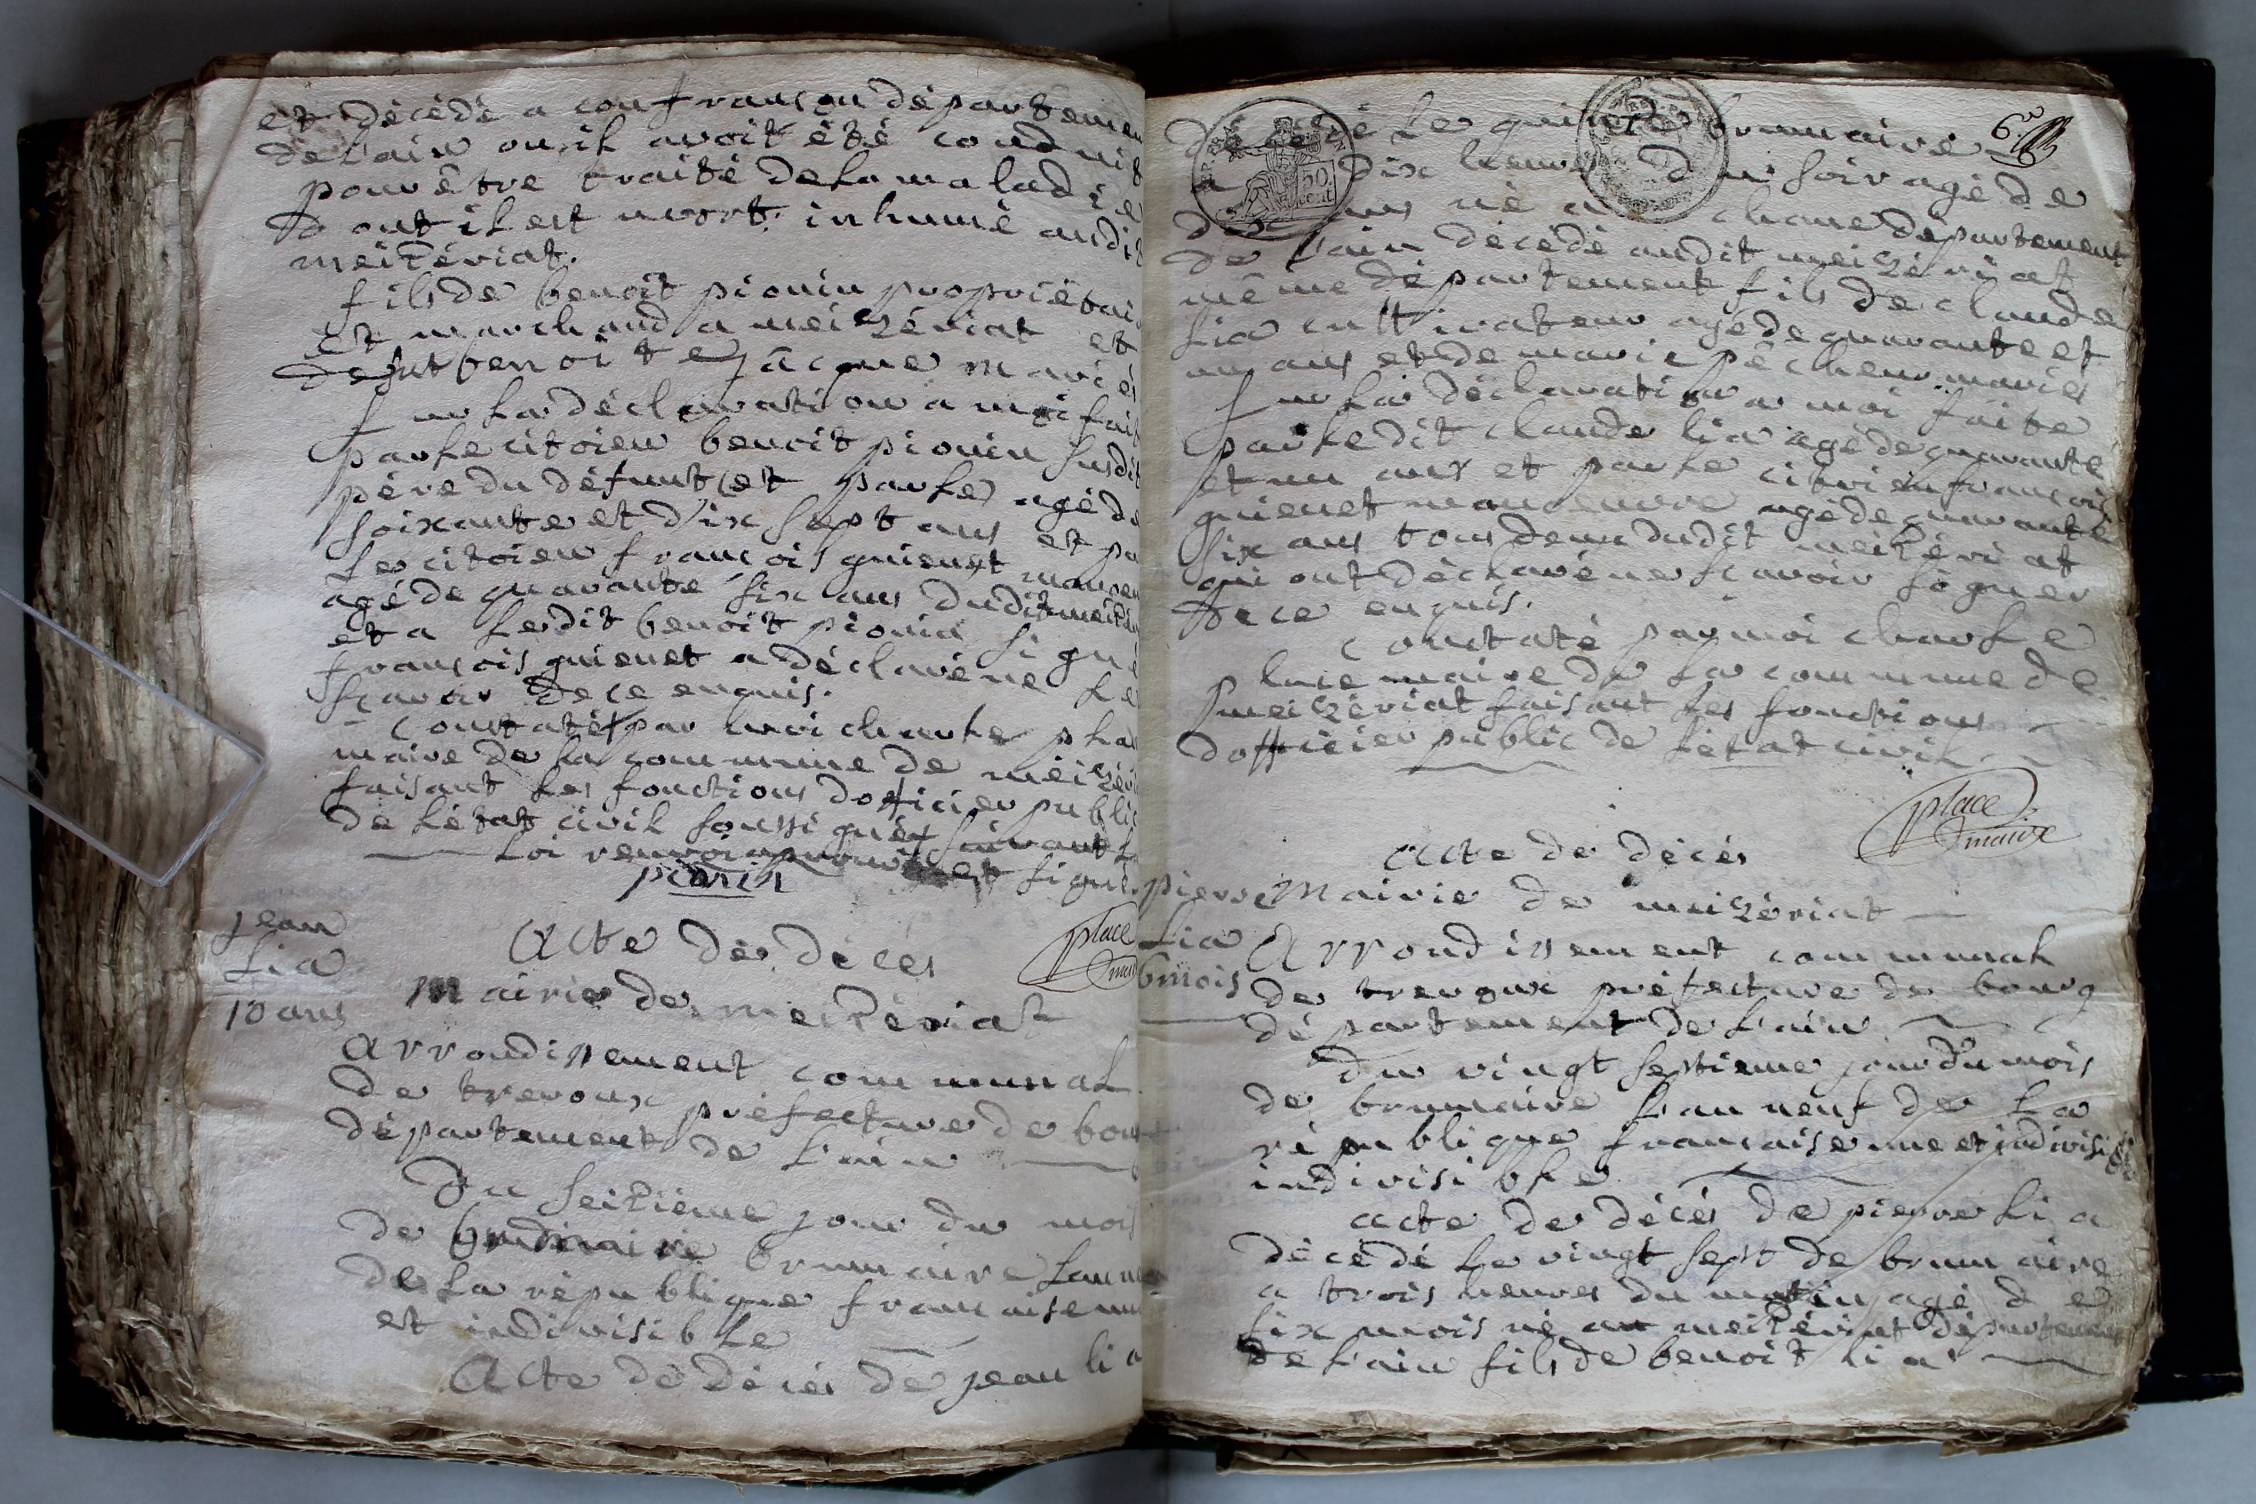 et décédé a confrançon département
de l'ain ou il avoit été conduit
pour être traité de la maladie
dont il est mort. inhumé audit
meizériat.
fils de benoit pionin propriétai
et marchand a meizériat et
de fut benoite jacque mariés
sur la déclaration a moi fait
par le citoien benoit pionin susdit
père du défunt (et par le) agé de
soixante et dix sept ans et pa
le citoien françois guienet manoeu
agé de quarante six ans dudit meizér
et a ledit benoit pionin signé
françois guienet a déclaré ne le
sçavoir de ce enquis.
constaté par moi charle pla
maire de la commune de meizéri
faisant les fonctions dofficier public
de létat civil soussigné suivant l
loi renvoi approuvé et signé
pionin
place
maire
jean
lia
10 ans
Acte de décés
mairie de meizériat
Arrondissement communal
de trevoux préfecture de bour
département de l'ain
Du seizième jour du mois
de brumaire lan neu
de la république francaise un
et indivisible
Acte de décés de jean lia
6
décédé le quinze brumaire
a dix heures du soir agé de
dix ans né a chane département
de l'ain décédé audit meizériat
même département fils de claude
lia cultivateur agé de quarante et
un ans et de marie pécheur mariés
sur la déclaration a moi faite
par ledit claude lia agé de quarante
et un ans et par le citoien françois
guienet manoeuvre agé de quarante
six ans tous deux dudit meizériat
qui ont déclaré ne sçavoir signer
de ce enquis.
constaté par moi charle
place maire de la commune de
meizériat faisant les fonctions
dofficier public de létat civil
place
maire
pierre
lia
6 mois
Acte de décés
Mairie de meizériat
Arrondissement communal
de trevoux préfecture de bourg
département de l'ain
Du vingt septieme jour du mois
de brumaire l'an neuf de la
république francaise une et indivisi
indivisible
acte de décés de pierre lia
décédé le vingt sept de brumaire
a trois heures du matin agé de
six mois né au meizériat département
de l'ain fils de benoit lia